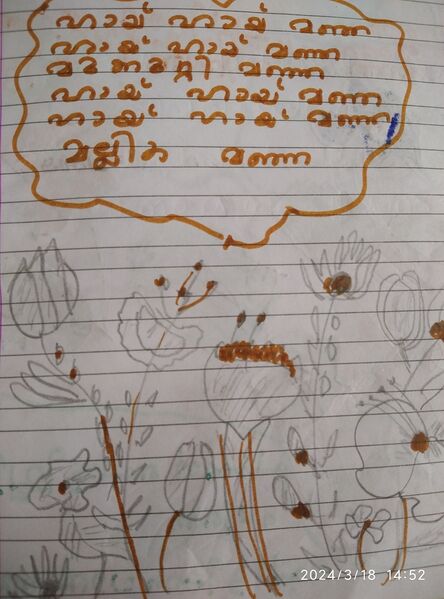 ഹായ് ഹായ് വന്ന
ഹായ് ഹായ് വന്ന
വന്ന
ഹായ് ഹായ് വന്ന
ഹായ് ഹായ് വന്ന
മല്ലിക വന്ന
2024/3/18 14:52